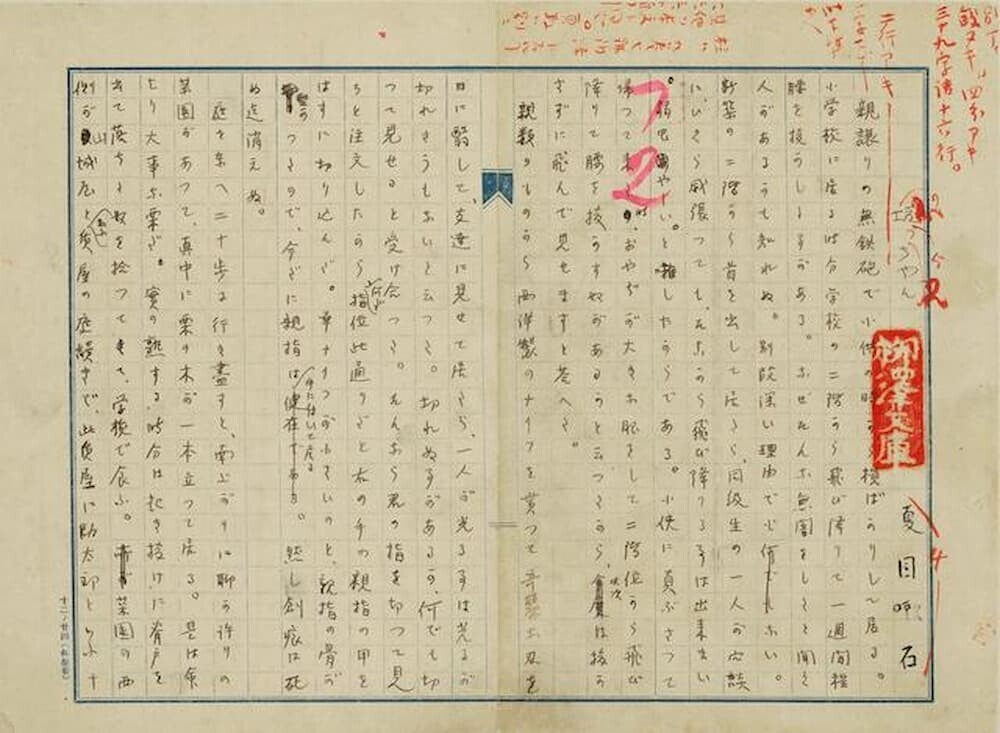 三十九字詰十六行。
二行アキ
坊っちやん
夏目漱石
親譲りの無鉄砲で小供の時から損ばかりして居る。
小学校に居る時分学校の二階から飛び降りて一週間程
腰を抜かした事がある。なぜそんな無闇をしたと聞く
人があるかも知れぬ。別段深い理由でも何でもない。
新築の二階から首を出して居たら、同級生の一人が冗談
に、いくら威張つても、そこから飛び降りる事は出来まい
。弱虫やーい。と囃したからである。小使に負ぶさつて
帰つて来た時、おやぢが大きな眼をして二階位から飛び
降りて腰を抜かす奴があるかと云つたから、此次は抜か
さずに飛んで見せますと答へた。
親類のものから西洋製のナイフを貰つて奇麗な刃を
日に翳して、友達に見せて居たら、一人が光る事は光るが
切れさうもないと云つた。切れぬ事があるか、何でも切
つて見せると受け合つた。そんなら君の指を切つて見
ろと注文したから、何だ指位此通りだと右の手の親指の甲を
はすに切り込んだ。幸ナイフが小さいのと、親指の骨が
堅かつたので、今だに親指は手に付いて居る。然し創痕は死
ぬ迄消えぬ。
庭を東へ二十歩に行き盡すと、南上がりに聊か許りの
菜園があつて、真中に栗の木が一本立つて居る。是は命
より大事な栗だ。實の熟する時分は起き抜けに脊戸を
出て落ちた奴を拾つてきて、学校で食ふ。菜園の西
側が山城屋と云ふ質屋の庭続きで、此質屋に勘太郎といふ十
72